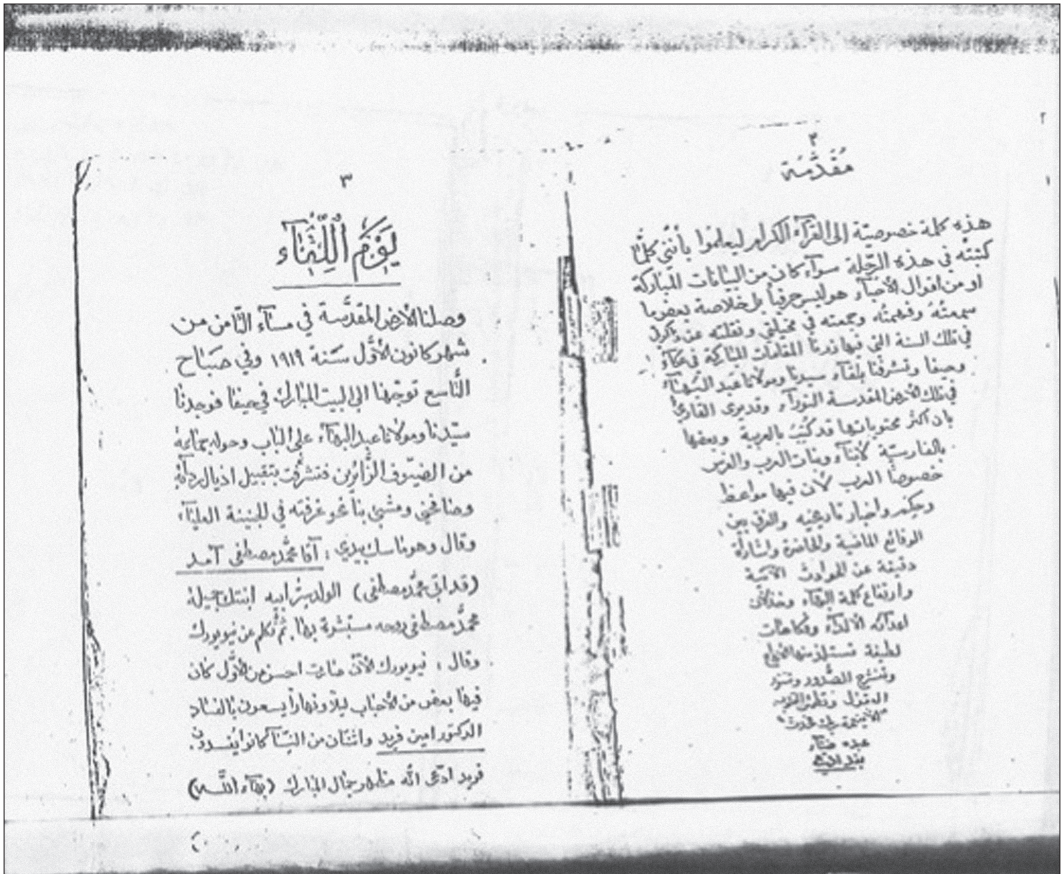 ٢
مُقَدَّمة
هذه كلمة خصوصيّة إلى القرآء الكرام ليعلموا بأنّني كلَّما
كتبتُه في هذه الرحلة سوآء كان من البيانات المباركة
او من اقوال الأحباء هو ليس حرفياً بل خلاصة بعض ما
سمعتُهُ وفهمتُه وجمعته في مخيلتي ونقلته عن
في تلك السنة التي فيها زرنا المقامات المباركة في عكآء
وحيفا وتشرفنا بلقآء سيدنا ومولانا عبد البهآء
في تلك الأرض المقدسة النورآء القارئ
بان اكثر محتوياتها قد كُتِبَ بالعربية وبعضها
بالفارسيّة لأبنآء وبنات الدرب
خصوصاً الدرب لأن فيها مواعظ
وحِكَم واخبار تاريخيه والفرق بين
الوقائع الماضية والحاضرة
دقيقة عن الحوادث الآتية
وارتفاع كلمة البهآء
اعدائه الألدآء وفكاهات
لطيفة
وتنشرح الصُّدور
العقول
عبده
٣
يَوْمُ اللِّقَآء
وصلنا الأرض المقدَّسة في مسآء الثَّامن من
شهر كانون الأوَّل سَنة ١٩١٩ وفي صَبَاح
التَّاسِع توجّهنا الى البيت المبارك في حيفا فوجدنا
سيّدنا ومولانا عبد البهآء على الباب وحوله جماعة
من الضيُوف الزَّائرين فتشرَّفت بتقبيل اذيال ردآئه
وصافحني ومشى بنا نحو غرفته في الجنينة العليآء
وقال وهو ماسك بيدي : آقا محمَّد مصطفى آمد
(قد اتى محمَّد مصطفى) الولد سرّ ابيه ابنتك جميلة
محمَّد مصطفى روحه مستبشرة بها. ثُمَّ تكلم عن نيويورك
وقال : نيويورك الآن صارت احسن من الأوَّل كان
فيها بعض من الأحباب ليلاً ونهاراً يسعون بالفساد
الدكتور امين فريد واثنان من النِّسآ كانوا يفسدون.
فريد ادّعى انّه مظهر جمال المبارك (بهآء اللّه)